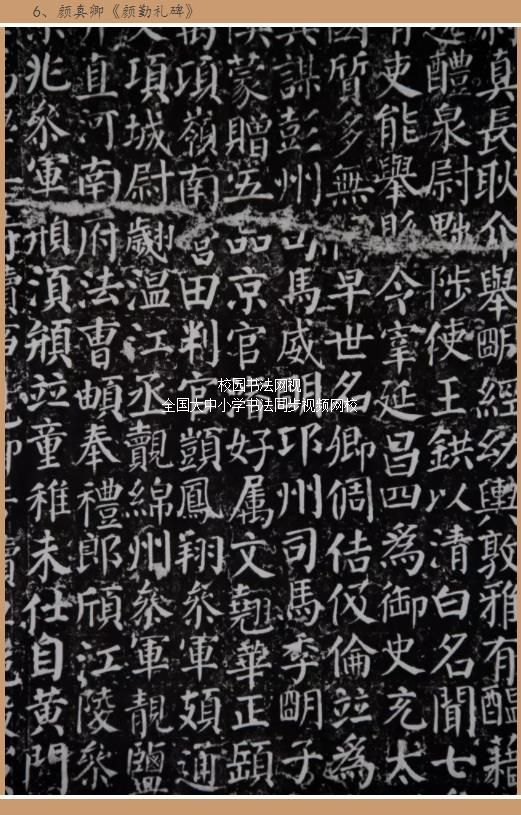 6、颜真卿《颜勤礼碑》
真長耿介舉明經幼輿敦雅有醖藉
醴泉尉黜陟使王鉷以清白名聞七
吏能舉縣令宰延昌四為御史充太
質多無早世名卿倜佶伋倫竝為
謀彭州司馬威明邛州司馬季明子
蒙贈五品京官好属文翹華正頵
項嶺南營田判官顗鳳翔參軍頗通
項城尉翽温江丞覿綿州參軍靚鹽
直河南府法曹頔奉禮郎頎江陵參
兆參軍頍須頩竝童稚未仕自黃門
校园书法网视
全国大中小学书法同步视频网校